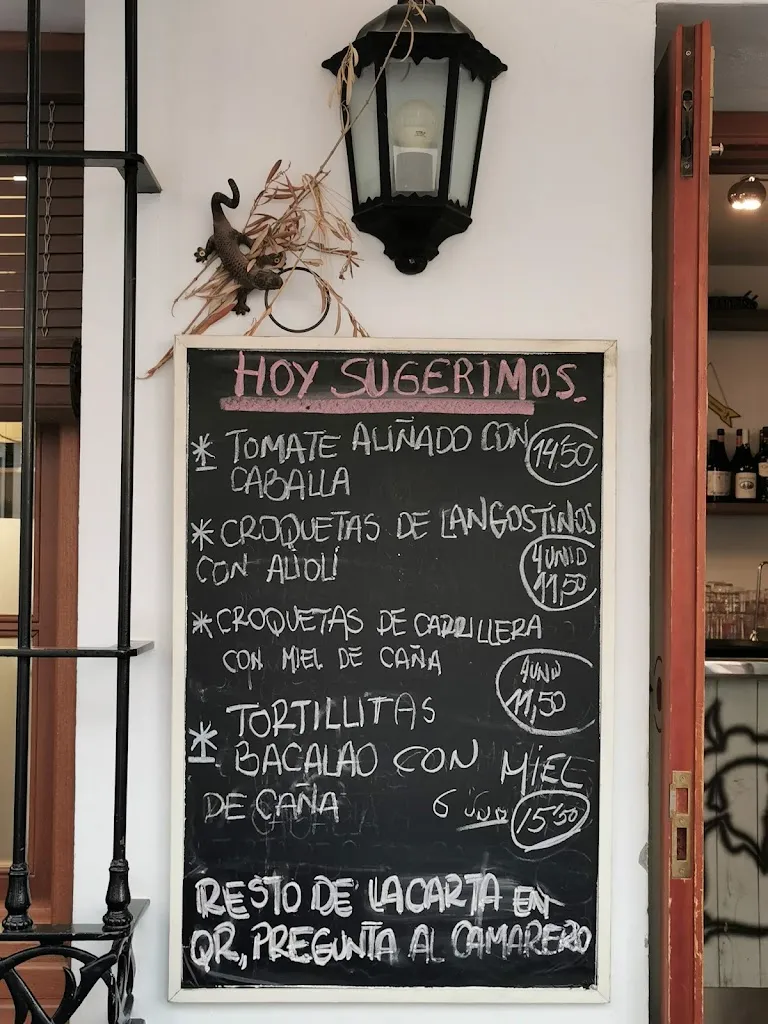 HOY SUGERIMOS.
* TOMATE ALIÑADO CON 14'50
CABALLA
* CROQUETAS DE LANGOSTINOS
CON ALIOLI 4 UNID 11,50
* CROQUETAS DE CARRILLERA
CON MIEL DE CAÑA 4 UNID 11,50
* TORTILLITAS
BACALAO CON MIEL
DE CAÑA 6 UNID 15'50
RESTO DE LA CARTA EN
QR, PREGUNTA AL CAMARERO